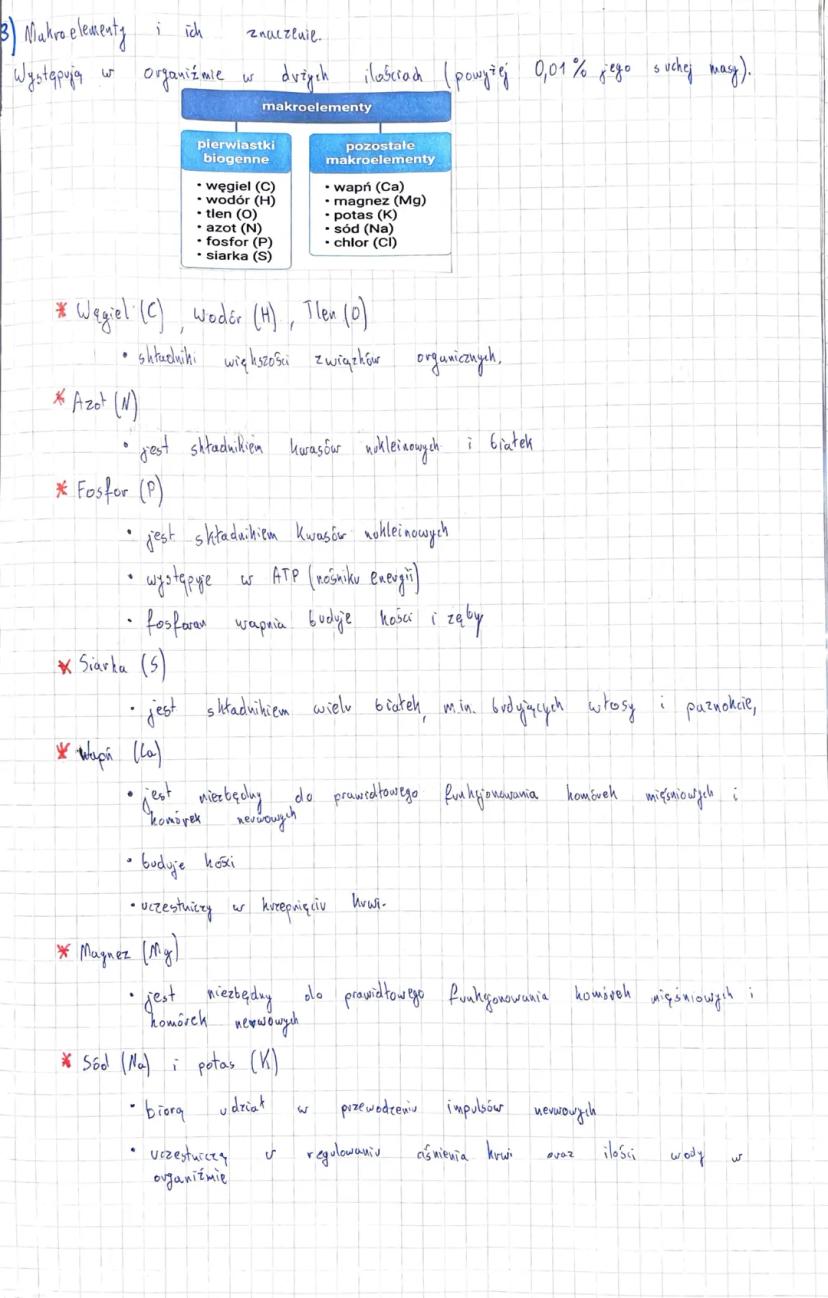 3) Makroelementy i ich znaczenie.
Występują w organiźmie w dużych ilościach (powyżej 0,01% jego suchej masy).
makroelementy
pierwiastki
biogenne
• węgiel (C)
• wodór (H)
• tlen (O)
• azot (N)
• fosfor (P)
• siarka (S)
pozostałe
makroelementy
• wapń (Ca)
• magnez (Mg)
• potas (K)
• sód (Na)
• chlor (Cl)
* Węgiel (C), Wodór (H), Tlen (O)
• składniki większości związków organicznych.
* Azot (N)
• jest składnikiem kwasów nukleinowych i białek
* Fosfor (P)
• jest składnikiem kwasów nukleinowych
• występuje w ATP (nośniku energii)
• fosforan wapnia buduje kości i zęby
* Siarka (S)
• jest składnikiem wielu białek, m.in. budujących włosy i paznokcie,
* Wapń (Ca)
• jest niezbędny do prawidłowego funkcjonowania komórek mięśniowych i
komórek nerwowych
• buduje kości
• uczestniczy w krzepnięciu krwi.
* Magnez (Mg)
• jest niezbędny do prawidłowego funkcjonowania komórek mięśniowych i
komórek nerwowych
* Sód (Na) i potas (K)
• biorą udział w przewodzeniu impulsów nerwowych
• uczestniczą w regulowaniu ciśnienia krwi oraz ilości wody w
organiźmie